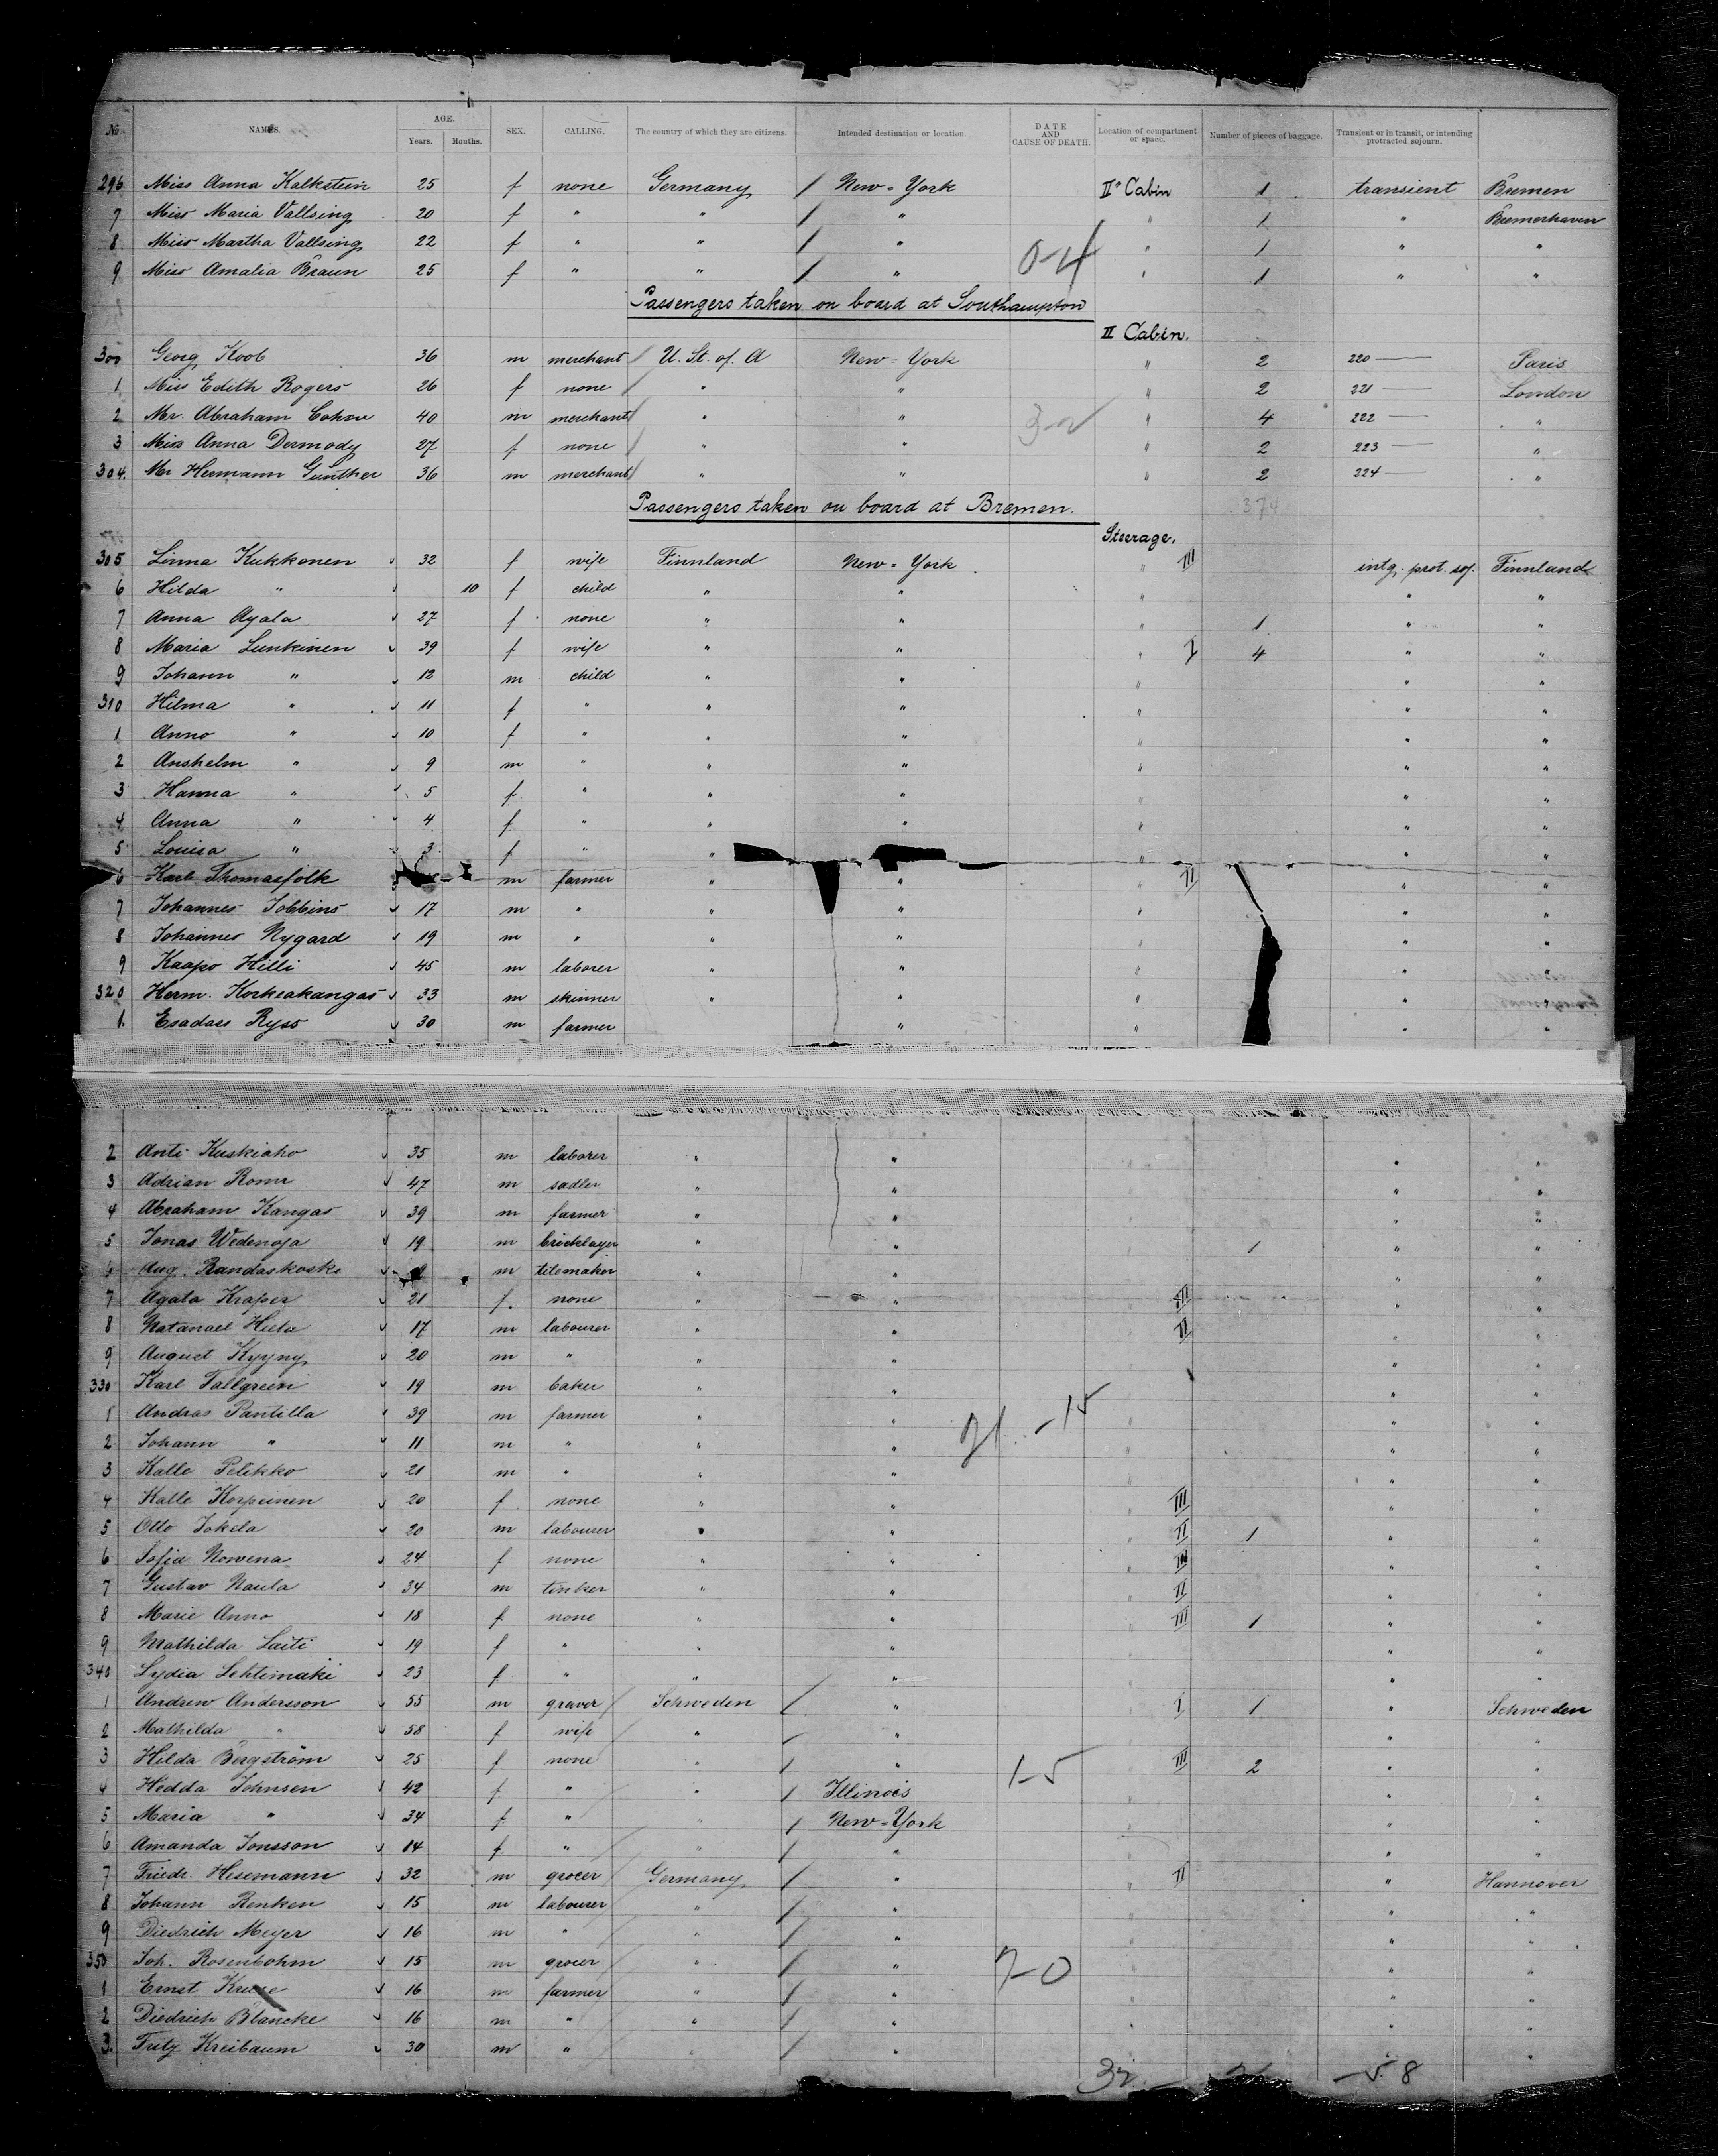 No. NAMES. AGE. Years. Months. SEX. CALLING. The country of which they are citizens. Intended destination or location. DATE AND CAUSE OF DEATH. Location of compartment or space. Number of pieces of baggage. Transient or in transit, or intending protracted sojourn.
296 Miss Anna Kalkstein 25 f none Germany / New-York IIᵒ Cabin 1 transient Bremen
7 Miss Maria Vallsing 20 f " " / " " 1 " Bremerhaven
8 Miss Martha Vallsing 22 f " " / " 0-4 " 1 " "
9 Miss Amalia Braun 25 f " " / " " 1 " "
Passengers taken on board at Southampton
II Cabin.
300 Georg Koob 36 m merchant / U. St. of. A New-York " 2 220 — Paris
1 Miss Edith Rogers 26 f none / " " " 2 221 — London
2 Mr. Abraham Cohen 40 m merchant / " " 3- " 4 222 — "
3 Miss Anna Dermody 27 f none / " " " 2 223 — "
304. Mr Hermann Gunther 36 m merchant / " " " 2 224 — "
Passengers taken on board at Bremen. 374
Steerage.
305 Linna Kukkonen 32 f wife Finnland New-York. " III intg. prot. soj. Finnland
6 Hilda " 10 f child " " " " "
7 Anna Ayala 27 f none " " " 1 " "
8 Maria Lunkinen 39 f wife " " " I 4 " "
9 Johann " 12 m child " " " " "
310 Hilma " 11 f " " " " " "
1 Anno " 10 f " " " " " "
2 Anshelm " 9 m " " " " " "
3 Hanna " 5 f " " " " " "
4 Anna " 4 f " " " " " "
5 Louisa " 3 f " " " " "
6 Karl Thomasfolk m farmer " " " II " "
7 Johannes Jobbins 17 m " " " " " "
8 Johannes Nygard 19 m " " " " " "
9 Kaapo Hilli 45 m laborer " " " " "
320 Herm. Korkeakangas 33 m skinner " " " " "
1. Esadars Ryss 30 m farmer " " " "
2 Anti Kuskiaho 35 m laborer " " " "
3 Adrian Romr 47 m sadler " " " "
4 Abraham Kangas 39 m farmer " " " "
5 Jonas Wedenoja 19 m bricklayer " " 1 " "
6 Aug. Randaskoski m tilemaker " " " "
7 Agata Kraper 21 f. none " " III " "
8 Natanael Hieta 17 m labourer " " II " "
9 August Kyyny 20 m " " " " "
330 Karl Tallgreen 19 m baker " " " "
1 Andras Pantilla 39 m farmer " " 21-15 " " "
2 Johann " 11 m " " " " " "
3 Kalle Pelikko 21 m " " " " "
4 Kalle Korpeinen 20 f none " " " III " "
5 Otto Jokela 20 m labourer " " " II 1 " "
6 Sofia Nowena 24 f none " " " III " "
7 Gustav Naula 34 m " " " II " "
8 Marie Anno 18 f none " " " III 1 " "
9 Mathilda Laiti 19 f " " " " "
340 Lydia Lehtimaki 23 f " " " " "
1 Andrew Andersson 55 m graver / Schweden / " " I 1 " Schweden
2 Mathilda " 58 f wife / " / " " "
3 Hilda Bergström 25 f none " / " 1-5 " III 2 " "
4 Hedda Johnsen 42 f " " / Illinois " "
5 Maria " 34 f " " / New-York " "
6 Amanda Jonsson 14 f " " / " " "
7 Friedr. Hesemann 32 m grocer / Germany / " " II " Hannover
8 Johann Renken 15 m labourer " / " " " "
9 Diedrich Meyer 16 m " " / " " " "
350 Joh. Rosenbohm 15 m grocer / " / " 7-0 " " "
1 Ernst Kruse 16 m farmer / " / " " " "
2 Diedrich Blancke 16 m " " / " " " "
3. Fritz Kreibaum 30 m " " / " " "
32 — -58